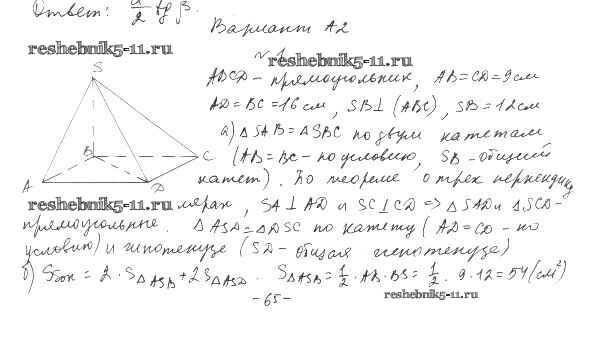 Ответ: a/2 tg β.
Вариант А2
reshebnik5-11.ru
№ 1
reshebnik5-11.ru
S
ABCD – прямоугольник, AB = CD = 9 см
AD = BC = 16 см, SB ⊥ (ABC), SB = 12 см
а) △SAB = △SBC по двум катетам
B
C
(AB = BC – по условию, SB – общий
A
D
катет). По теореме о трех перпендику
reshebnik5-11.ru
лярах, SA ⊥ AD и SC ⊥ CD => △SAD и △SCD –
прямоугольные. △ASD = △DSC по катету (AD = CD – по
условию) и гипотенузе (SD – общая гипотенуза)
б) Sбок = 2 · S△ASB + 2S△ASD. S△ASB = 1/2 · AB · BS = 1/2 · 9 · 12 = 54 (см²)
– 65 –
reshebnik5-11.ru